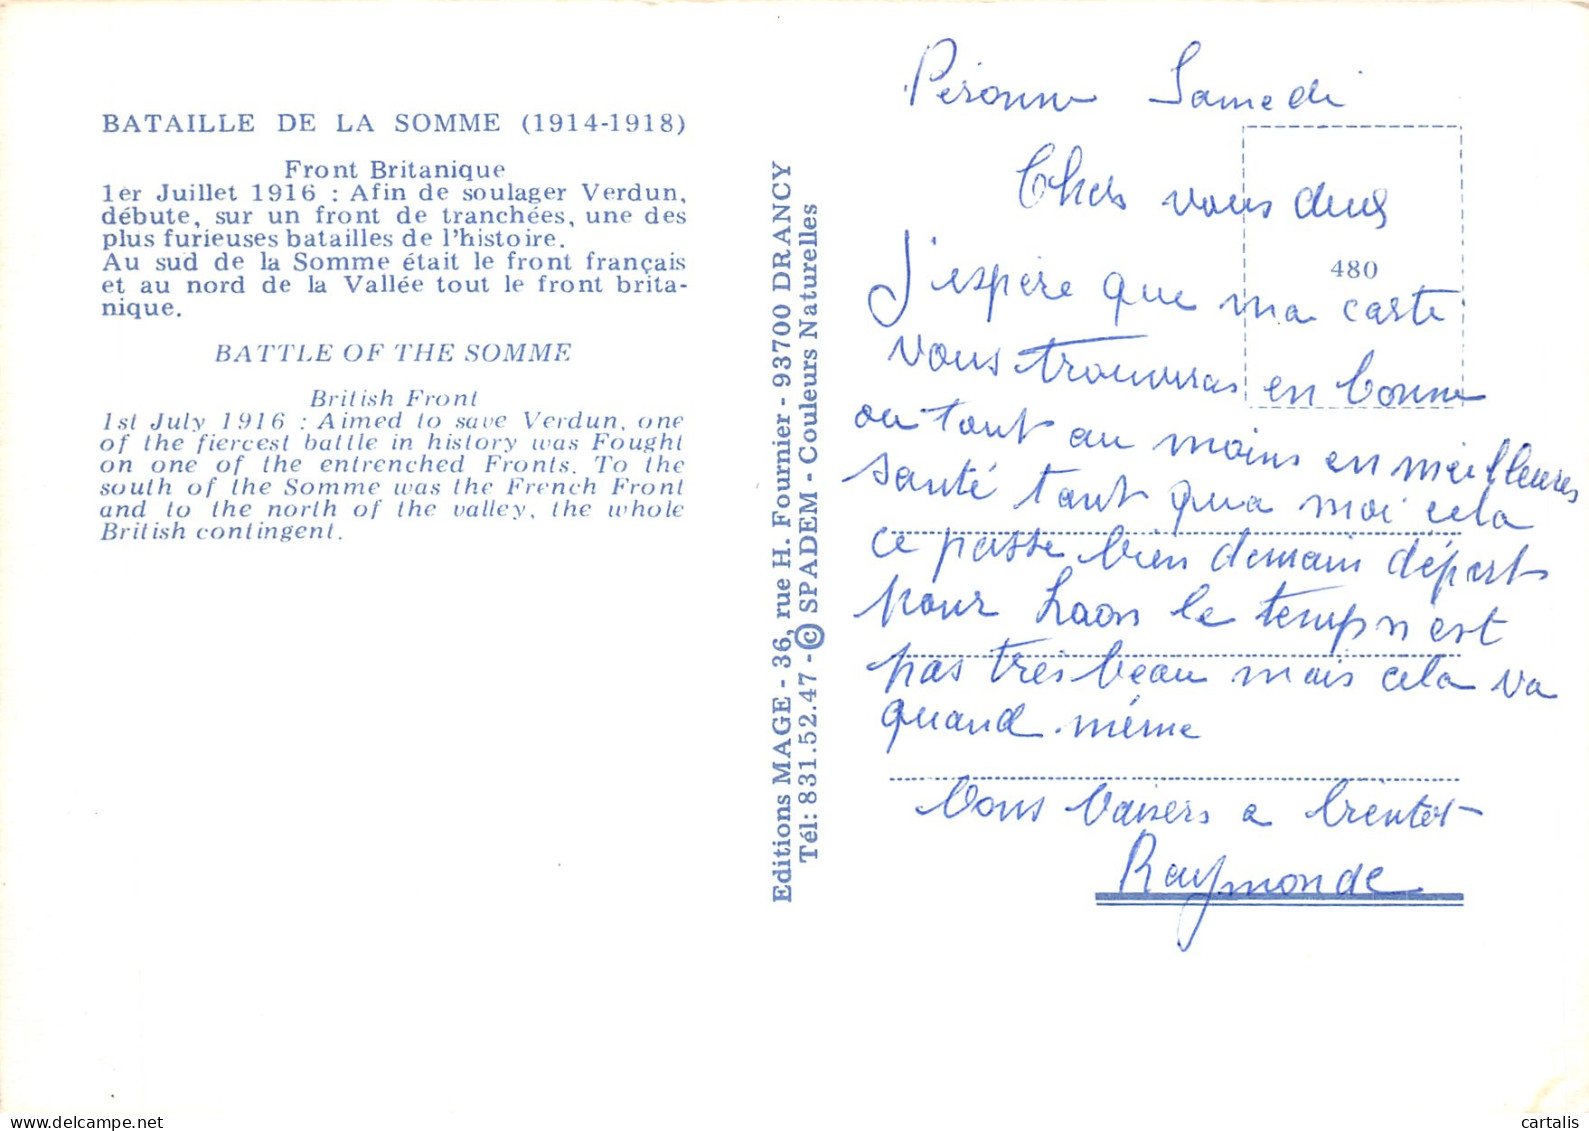 BATAILLE DE LA SOMME (1914-1918)
Front Britanique
1er Juillet 1916 : Afin de soulager Verdun,
débute, sur un front de tranchées, une des
plus furieuses batailles de l'histoire.
Au sud de la Somme était le front français
et au nord de la Vallée tout le front brita-
nique.
BATTLE OF THE SOMME
British Front
1st July 1916 : Aimed to save Verdun, one
of the fiercest battle in history was Fought
on one of the entrenched Fronts. To the
south of the Somme was the French Front
and to the north of the valley, the whole
British contingent.
Editions MAGE - 36, rue H. Fournier - 93700 DRANCY
Tél: 831.52.47 - © SPADEM - Couleurs Naturelles
480
Péronne Samedi
Chers vous deux
J'espère que ma carte
vous trouveras en bonne
ou tout au moins en meilleures
santé tant qua moi cela
ce passe bien demain départ
pour Laon le temps n'est
pas très beau mais cela va
quand même
Bons baisers a bientot
Raymonde
cartalis